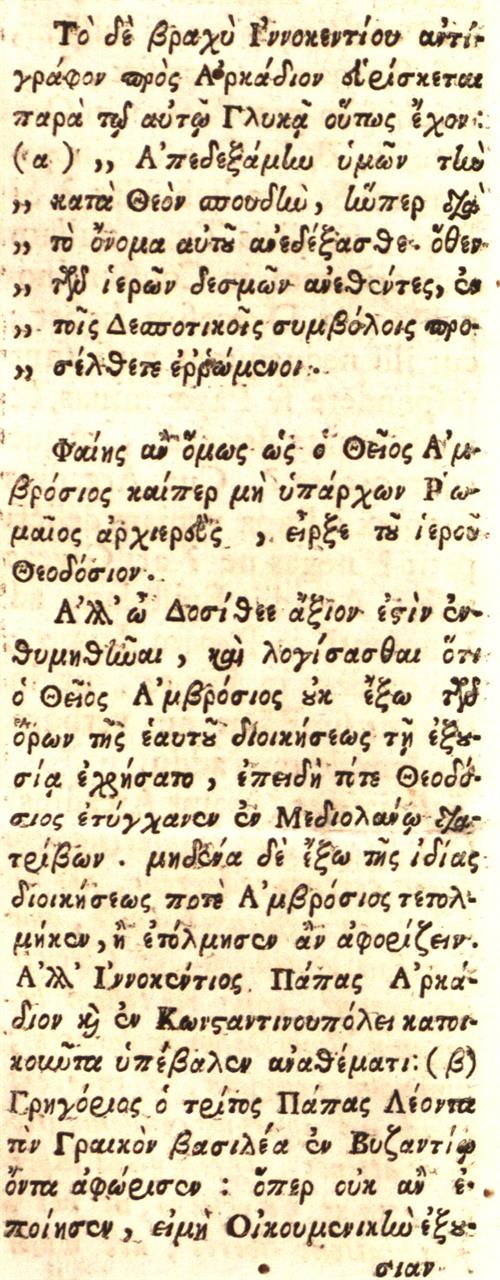 Τὸ δὲ βραχὺ Ἰννοκεντίου ἀντί-
γράφον πρὸς Ἀρκάδιον εὑρίσκεται
παρὰ τῷ αὐτῷ Γλυκᾷ οὕτως ἔχον:
(α) ,, Ἀπεδεξάμην ὑμῶν τὴν
,, κατὰ Θεὸν σπουδὴν, ἥνπερ διὰ
,, τὸ ὄνομα αὐτοῦ ἀνεδέξασθε. ὅθεν
,, τῶν ἱερῶν δεσμῶν ἀνεθέντες, ἐν
,, τοῖς Δεσποτικοῖς συμβόλοις προ-
,, σέλθετε ἐῤῥώμενοι.
Φαίης ἂν ὅμως ὡς ὁ Θεῖος Ἀμ-
βρόσιος καίπερ μὴ ὑπάρχων Ῥω-
μαῖος ἀρχιερεὺς, εἶρξε τοῦ ἱεροῦ
Θεοδόσιον.
Ἀλλ' ὦ Δοσίθεε ἄξιον ἐστὶν ἐν-
θυμηθῆναι, καὶ λογίσασθαι ὅτι
ὁ Θεῖος Ἀμβρόσιος οὐκ ἔξω τῶν
ὅρων τῆς ἑαυτοῦ διοικήσεως τῇ ἐξου-
σίᾳ ἐχρήσατο, ἐπειδὴ τότε Θεοδό-
σιος ἐτύγχανεν ἐν Μεδιολάνῳ δια-
τρίβων. μηδένα δὲ ἔξω τῆς ἰδίας
διοικήσεως ποτὲ Ἀμβρόσιος τετολ-
μήκεν, ἢ ἐτόλμησεν ἂν ἀφορίζειν.
Ἀλλ' Ἰννοκέντιος Πάπας Ἀρκά-
διον καὶ ἐν Κωνσταντινουπόλει κατοι-
κοῦντα ὑπέβαλεν ἀναθέματι: (β)
Γρηγόριος ὁ τρίτος Πάπας Λέοντα
τὸν Γραικὸν βασιλέα ἐν Βυζαντίῳ
ὄντα ἀφώρισεν: ὅπερ οὐκ ἂν ἐ-
ποίησεν, εἰμὴ Οἰκουμενικὴν ἐξου-
σιαν